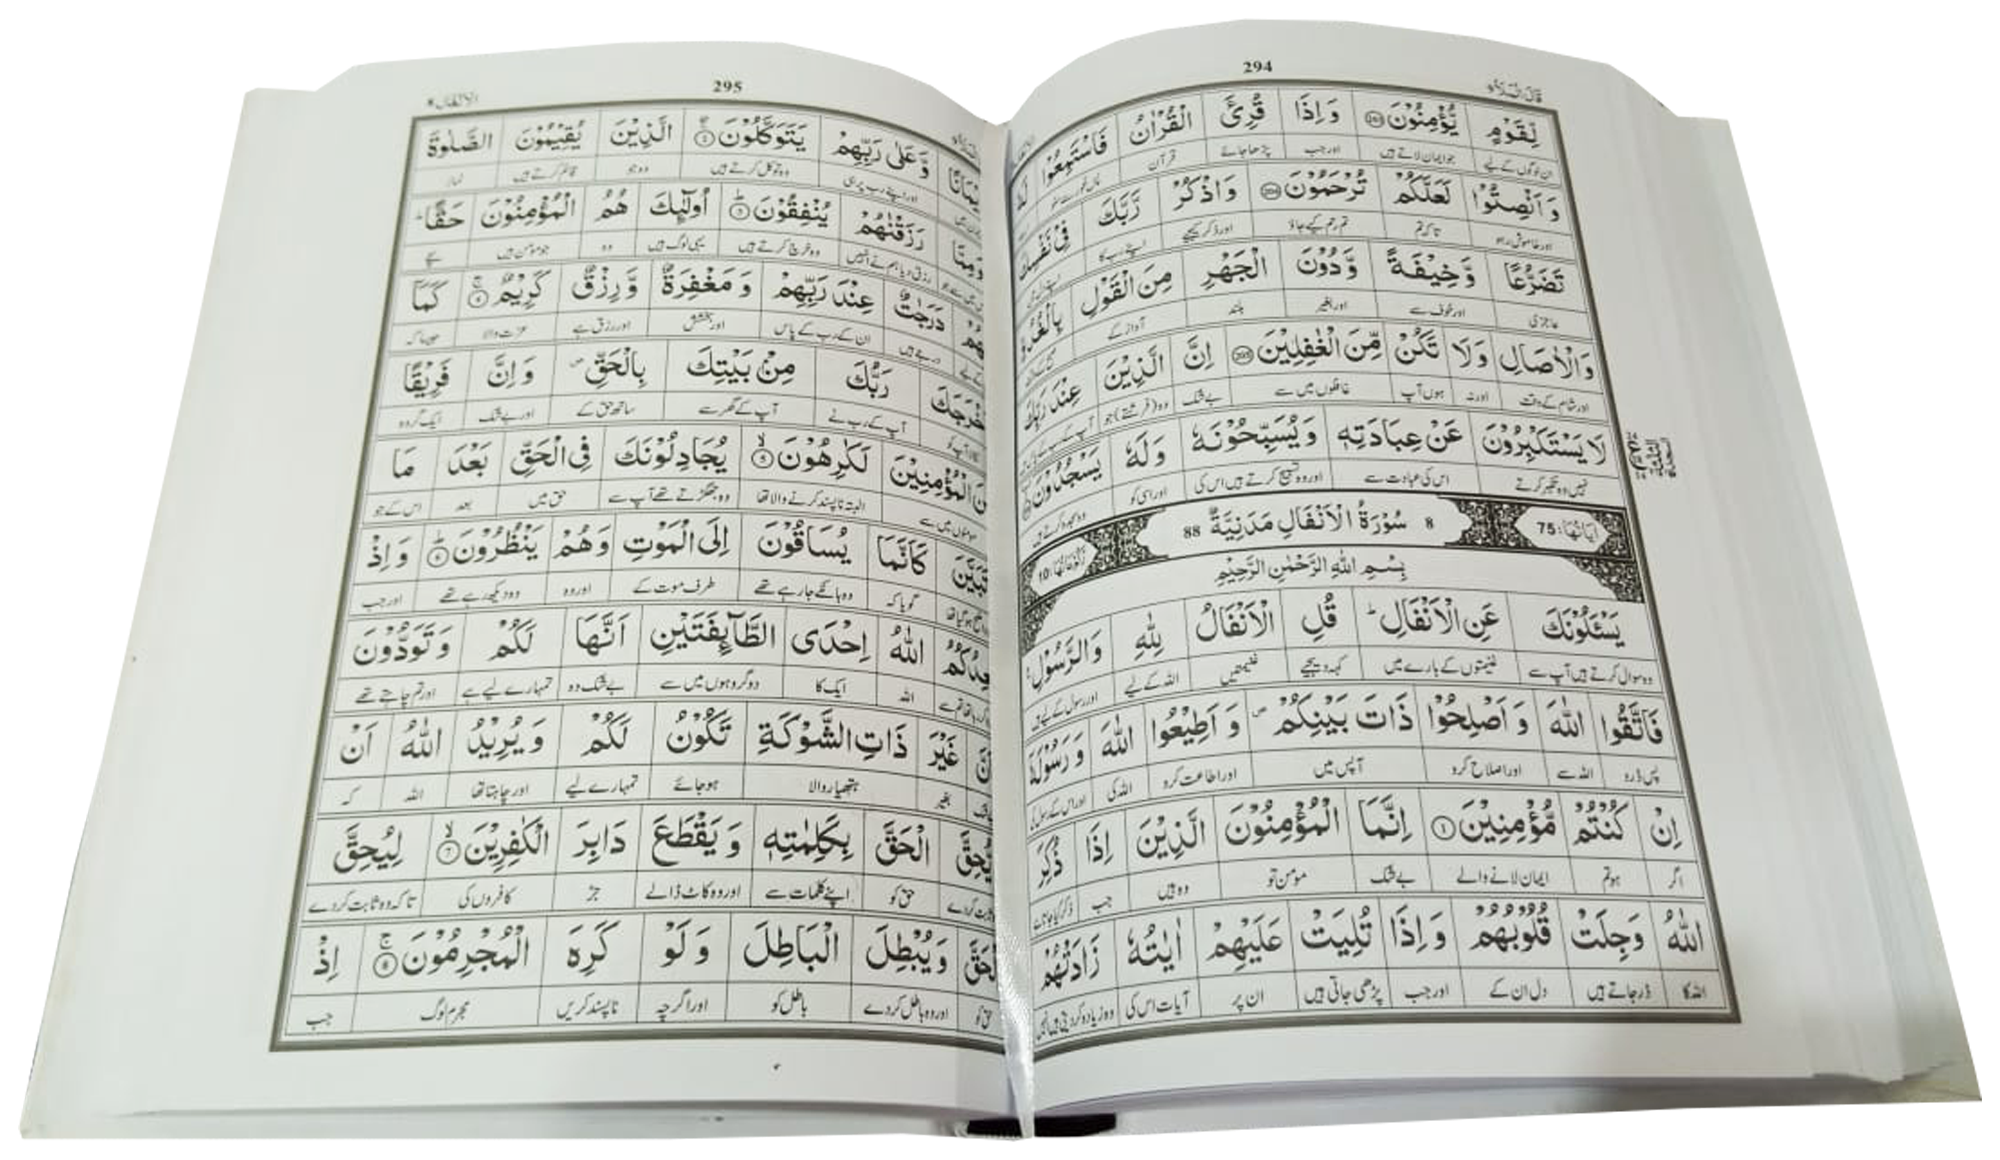 294
قَالَ الْمَلَاُ ۹
لِّقَوْمٍ يُّؤْمِنُوْنَ ۝203 وَ اِذَا قُرِئَ الْقُرْاٰنُ فَاسْتَمِعُوْا
ان لوگوں کے لیے جو ایمان لاتے ہیں اور جب پڑھا جائے قرآن
وَ اَنْصِتُوْا لَعَلَّكُمْ تُرْحَمُوْنَ ۝204 وَ اذْكُرْ رَّبَّكَ فِىْ نَفْسِكَ
اور خاموش رہو تاکہ تم تم رحم کیے جاؤ اور ذکر کیجیے اپنے رب کا
تَضَرُّعًا وَّ خِيْفَةً وَّ دُوْنَ الْجَهْرِ مِنَ الْقَوْلِ بِالْغُدُوِّ
عاجزی اور خوف سے اور بغیر بلند آواز کے
وَ الْاٰصَالِ وَ لَا تَكُنْ مِّنَ الْغٰفِلِيْنَ ۝205 اِنَّ الَّذِيْنَ عِنْدَ رَبِّكَ
اور شام کے وقت اور نہ ہوں آپ غافلوں میں سے بے شک وہ (فرشتے) جو آپ کے رب کے پاس
لَا يَسْتَكْبِرُوْنَ عَنْ عِبَادَتِهٖ وَ يُسَبِّحُوْنَهٗ وَ لَهٗ يَسْجُدُوْنَ
نہیں وہ تکبر کرتے اس کی عبادت سے اور وہ تسبیح کرتے ہیں اس کی اور اسی کو وہ سجدہ کرتے ہیں
اٰيَاتُهَا: 75 8 سُوْرَةُ الْاَنْفَالِ مَدَنِيَّةٌ 88 رُكُوْعَاتُهَا: 10
بِسْمِ اللّٰهِ الرَّحْمٰنِ الرَّحِيْمِ
يَسْـَٔلُوْنَكَ عَنِ الْاَنْفَالِ ؕ قُلِ الْاَنْفَالُ لِلّٰهِ وَ الرَّسُوْلِ ۚ
وہ سوال کرتے ہیں آپ سے غنیمتوں کے بارے میں کہہ دیجیے غنیمتیں اللہ کے لیے اور رسول کے لیے ہیں
فَاتَّقُوا اللّٰهَ وَ اَصْلِحُوْا ذَاتَ بَيْنِكُمْ ۪ وَ اَطِيْعُوا اللّٰهَ وَ رَسُوْلَهٗۤ
پس ڈرو اللہ سے اور اصلاح کرو آپس میں اور اطاعت کرو اللہ کی اور اس کے رسول کی
اِنْ كُنْتُمْ مُّؤْمِنِيْنَ ۝1 اِنَّمَا الْمُؤْمِنُوْنَ الَّذِيْنَ اِذَا ذُكِرَ
اگر ہو تم ایمان لانے والے بے شک مومن تو وہ ہیں جب ذکر کیا جاتا ہے
اللّٰهُ وَجِلَتْ قُلُوْبُهُمْ وَ اِذَا تُلِيَتْ عَلَيْهِمْ اٰيٰتُهٗ زَادَتْهُمْ
اللہ کا ڈر جاتے ہیں دل ان کے اور جب پڑھی جاتی ہیں ان پر آیات اس کی وہ زیادہ کر دیتی ہیں انہیں
295
الْاَنْفَال ۸
اِيْمَانًا وَّ عَلٰى رَبِّهِمْ يَتَوَكَّلُوْنَ ۝2 الَّذِيْنَ يُقِيْمُوْنَ الصَّلٰوةَ
اور اپنے رب پر ہی وہ توکل کرتے ہیں وہ جو قائم کرتے ہیں نماز
وَ مِمَّا رَزَقْنٰهُمْ يُنْفِقُوْنَ ۝3 اُولٰٓئِكَ هُمُ الْمُؤْمِنُوْنَ حَقًّا ؕ
رزق دیا ہم نے انہیں وہ خرچ کرتے ہیں یہی لوگ ہیں وہ جو مومن ہیں سچے
دَرَجٰتٌ عِنْدَ رَبِّهِمْ وَ مَغْفِرَةٌ وَّ رِزْقٌ كَرِيْمٌ ۝4 كَمَاۤ
درجے ہیں ان کے رب کے پاس اور بخشش اور رزق ہے عزت والا جیسا کہ
اَخْرَجَكَ رَبُّكَ مِنْۢ بَيْتِكَ بِالْحَقِّ ۪ وَ اِنَّ فَرِيْقًا
آپ کے رب نے آپ کے گھر سے ساتھ حق کے اور بے شک ایک گروہ
الْمُؤْمِنِيْنَ لَكٰرِهُوْنَ ۝5 يُجَادِلُوْنَكَ فِى الْحَقِّ بَعْدَ مَا
مومنوں میں سے البتہ ناپسند کرنے والا تھا وہ جھگڑتے تھے آپ سے حق میں بعد اس کے جو
تَبَيَّنَ كَاَنَّمَا يُسَاقُوْنَ اِلَى الْمَوْتِ وَ هُمْ يَنْظُرُوْنَ ۝6 وَ اِذْ
گویا کہ وہ ہانکے جا رہے تھے طرف موت کے اور وہ وہ دیکھ رہے تھے اور جب
يَعِدُكُمُ اللّٰهُ اِحْدَى الطَّآئِفَتَيْنِ اَنَّهَا لَكُمْ وَ تَوَدُّوْنَ
اللہ ایک کا دو گروہوں میں سے بے شک وہ تمہارے لیے ہے اور تم چاہتے تھے
غَيْرَ ذَاتِ الشَّوْكَةِ تَكُوْنُ لَكُمْ وَ يُرِيْدُ اللّٰهُ اَنْ
بغیر ہتھیار والا ہو جائے تمہارے لیے اور چاہتا تھا اللہ کہ
يُّحِقَّ الْحَقَّ بِكَلِمٰتِهٖ وَ يَقْطَعَ دَابِرَ الْكٰفِرِيْنَ ۝7 لِيُحِقَّ
حق کو اپنے کلمات سے اور وہ کاٹ ڈالے جڑ کافروں کی تاکہ وہ ثابت کر دے
الْحَقَّ وَ يُبْطِلَ الْبَاطِلَ وَ لَوْ كَرِهَ الْمُجْرِمُوْنَ ۝8 اِذْ
حق کو اور وہ باطل کر دے باطل کو اور اگرچہ ناپسند کریں مجرم لوگ جب